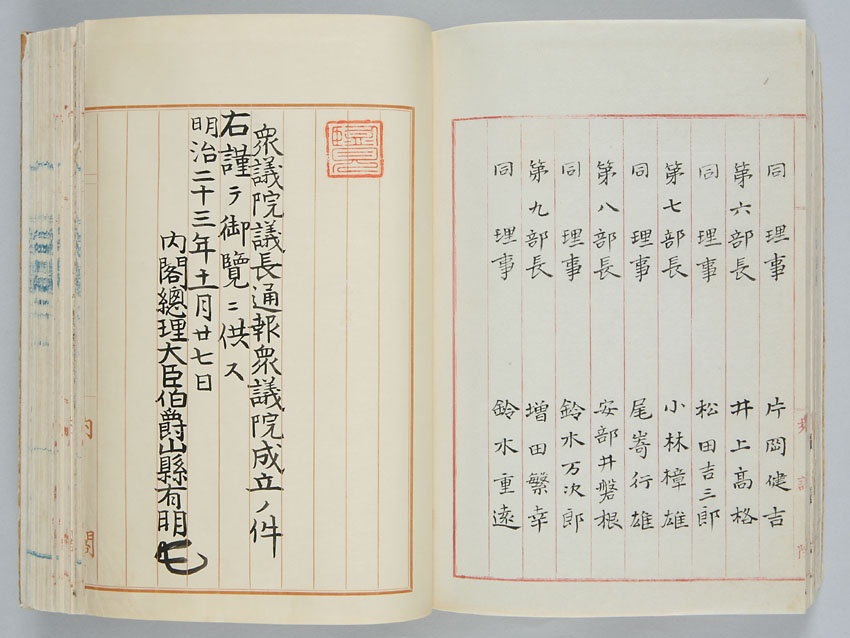 同 理事 片岡健吉
第六部長 井上高格
同 理事 松田吉三郎
第七部長 小林樟雄
同 理事 尾嵜行雄
第八部長 安部井磐根
同 理事 鈴木万次郎
第九部長 増田繁幸
同 理事 鈴木重遠
衆議院議長通報衆議院成立ノ件
右謹テ御覽ニ供ス
明治二十三年十一月廿七日
内閣總理大臣伯爵山縣有朋
内閣